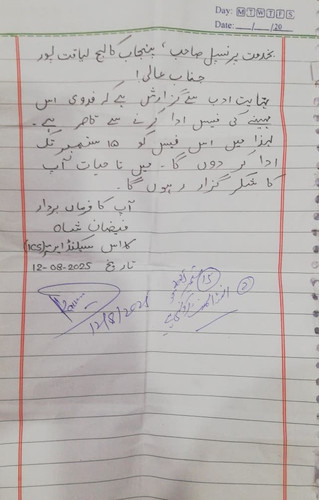 Day: M T W T F S
Date: __/__/20__
بخدمت پرنسپل صاحب، پنجاب کالج لیاقت پور
جناب عالی!
نہایت ادب سے گزارش ہے کہ فدوی اس
مہینے کی فیس ادا کرنے سے قاصر ہے۔
لہذا میں اس فیس کو ۱۵ ستمبر تک
ادا کر دوں گا۔ میں تا حیات آپ
کا شکر گزار رہوں گا۔
آپ کا فرماں بردار
فیضان شاہ
کلاس سیکنڈ ایئر (ICS)
تاریخ 12-08-2025
15
12/8/2025